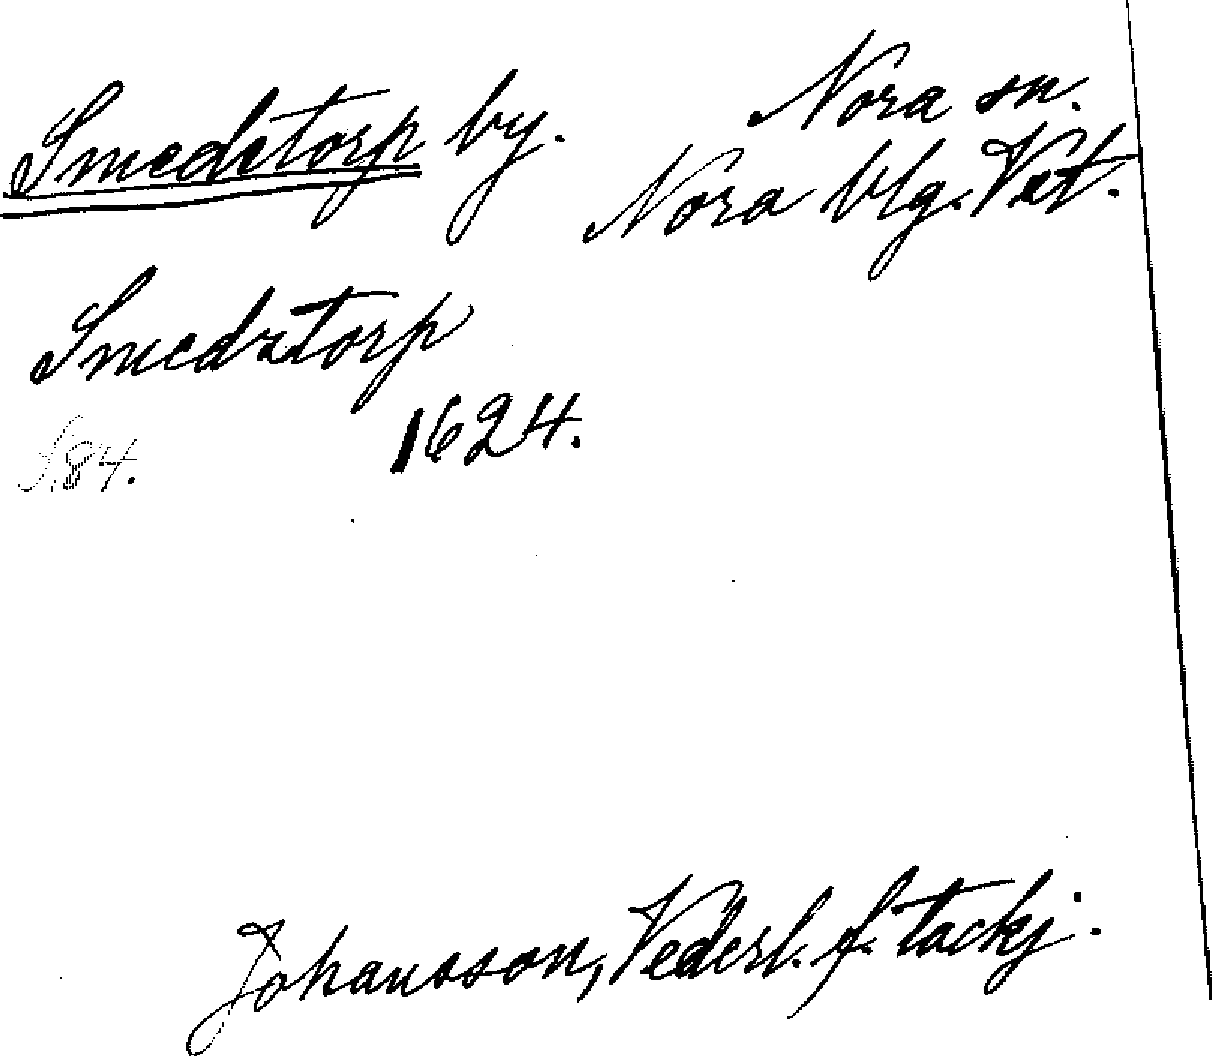 Smedstorp by.
Nora sn.
Nora blg. Vst.
Smedztorp
1624.
s.84.
Johansson, Vederl. f. tackj.